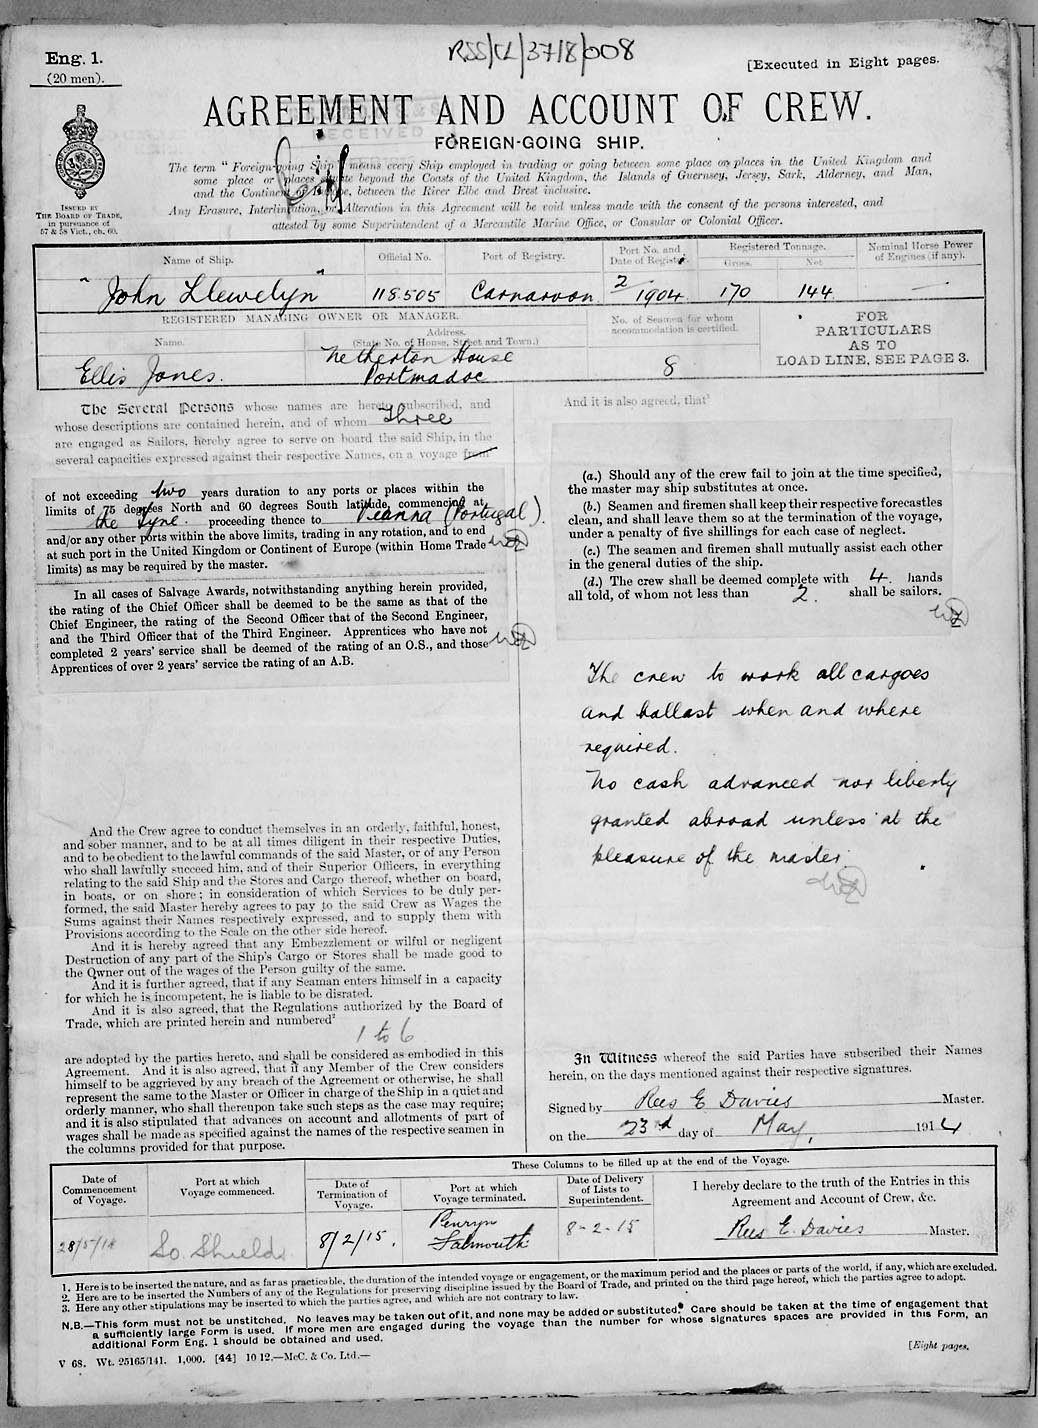 Eng. 1.
(20 men).
RSS/CL/37/8/008
[Executed in Eight pages.
ISSUED BY
THE BOARD OF TRADE,
in pursuance of
57 & 58 Vict., ch. 60.
AGREEMENT AND ACCOUNT OF CREW.
RECEIVED
FOREIGN-GOING SHIP.
The term "Foreign-going Ship" means every Ship employed in trading or going between some place or places in the United Kingdom and
some place or places situate beyond the Coasts of the United Kingdom, the Islands of Guernsey, Jersey, Sark, Alderney, and Man,
and the Continent of Europe, between the River Elbe and Brest inclusive.
Any Erasure, Interlineation, or Alteration in this Agreement will be void unless made with the consent of the persons interested, and
attested by some Superintendent of a Mercantile Marine Office, or Consular or Colonial Officer.
Name of Ship.
Official No.
Port of Registry.
Port No. and
Date of Register.
Registered Tonnage.
Gross.
Net.
Nominal Horse Power
of Engines (if any).
"John Llewelyn"
118505
Carnarvon
2/1904
170
144
—
REGISTERED MANAGING OWNER OR MANAGER.
Name.
Address.
(State No. of House, Street and Town.)
No. of Seamen for whom
accommodation is certified.
FOR
PARTICULARS
AS TO
LOAD LINE, SEE PAGE 3.
Ellis Jones.
Netherton House
Portmadoc
8
The Several Persons whose names are hereto subscribed, and
whose descriptions are contained herein, and of whom Three
are engaged as Sailors, hereby agree to serve on board the said Ship, in the
several capacities expressed against their respective Names, on a voyage from
of not exceeding two years duration to any ports or places within the
limits of 75 degrees North and 60 degrees South latitude, commencing at
the Tyne. proceeding thence to Vianna (Portugal).
and/or any other ports within the above limits, trading in any rotation, and to end
at such port in the United Kingdom or Continent of Europe (within Home Trade
limits) as may be required by the master.
In all cases of Salvage Awards, notwithstanding anything herein provided,
the rating of the Chief Officer shall be deemed to be the same as that of the
Chief Engineer, the rating of the Second Officer that of the Second Engineer,
and the Third Officer that of the Third Engineer. Apprentices who have not
completed 2 years' service shall be deemed of the rating of an O.S., and those
Apprentices of over 2 years' service the rating of an A.B.
And the Crew agree to conduct themselves in an orderly, faithful, honest,
and sober manner, and to be at all times diligent in their respective Duties,
and to be obedient to the lawful commands of the said Master, or of any Person
who shall lawfully succeed him, and of their Superior Officers, in everything
relating to the said Ship and the Stores and Cargo thereof, whether on board,
in boats, or on shore; in consideration of which Services to be duly per-
formed, the said Master hereby agrees to pay to the said Crew as Wages the
Sums against their Names respectively expressed, and to supply them with
Provisions according to the Scale on the other side hereof.
And it is hereby agreed that any Embezzlement or wilful or negligent
Destruction of any part of the Ship's Cargo or Stores shall be made good to
the Owner out of the wages of the Person guilty of the same.
And it is further agreed, that if any Seaman enters himself in a capacity
for which he is incompetent, he is liable to be disrated.
And it is also agreed, that the Regulations authorized by the Board of
Trade, which are printed herein and numbered²
1 to 6
are adopted by the parties hereto, and shall be considered as embodied in this
Agreement. And it is also agreed, that if any Member of the Crew considers
himself to be aggrieved by any breach of the Agreement or otherwise, he shall
represent the same to the Master or Officer in charge of the Ship in a quiet and
orderly manner, who shall thereupon take such steps as the case may require;
and it is also stipulated that advances on account and allotments of part of
wages shall be made as specified against the names of the respective seamen in
the columns provided for that purpose.
And it is also agreed, that³
(a.) Should any of the crew fail to join at the time specified,
the master may ship substitutes at once.
(b.) Seamen and firemen shall keep their respective forecastles
clean, and shall leave them so at the termination of the voyage,
under a penalty of five shillings for each case of neglect.
(c.) The seamen and firemen shall mutually assist each other
in the general duties of the ship.
(d.) The crew shall be deemed complete with 4. hands
all told, of whom not less than 2. shall be sailors.
The crew to work all cargoes
and ballast when and where
required.
No cash advanced nor liberty
granted abroad unless at the
pleasure of the master.
In Witness whereof the said Parties have subscribed their Names
herein, on the days mentioned against their respective signatures.
Signed by Rees E Davies Master.
on the 23rd day of May, 1914
These Columns to be filled up at the end of the Voyage.
Date of
Commencement
of Voyage.
Port at which
Voyage commenced.
Date of
Termination of
Voyage.
Port at which
Voyage terminated.
Date of Delivery
of Lists to
Superintendent.
I hereby declare to the truth of the Entries in this
Agreement and Account of Crew, &c.
28/5/14
So. Shields
8/2/15.
Penryn
Falmouth
8-2-15
Rees E. Davies Master.
1. Here is to be inserted the nature, and as far as practicable, the duration of the intended voyage or engagement, or the maximum period and the places or parts of the world, if any, which are excluded.
2. Here are to be inserted the Numbers of any of the Regulations for preserving discipline issued by the Board of Trade, and printed on the third page hereof, which the parties agree to adopt.
3. Here any other stipulations may be inserted to which the parties agree, and which are not contrary to law.
N.B.—This form must not be unstitched. No leaves may be taken out of it, and none may be added or substituted. Care should be taken at the time of engagement that
a sufficiently large Form is used. If more men are engaged during the voyage than the number for whose signatures spaces are provided in this Form, an
additional Form Eng. 1 should be obtained and used.
V 68. Wt. 25165/141. 1,000. [44] 10 12.—McC. & Co. Ltd.—
[Eight pages.